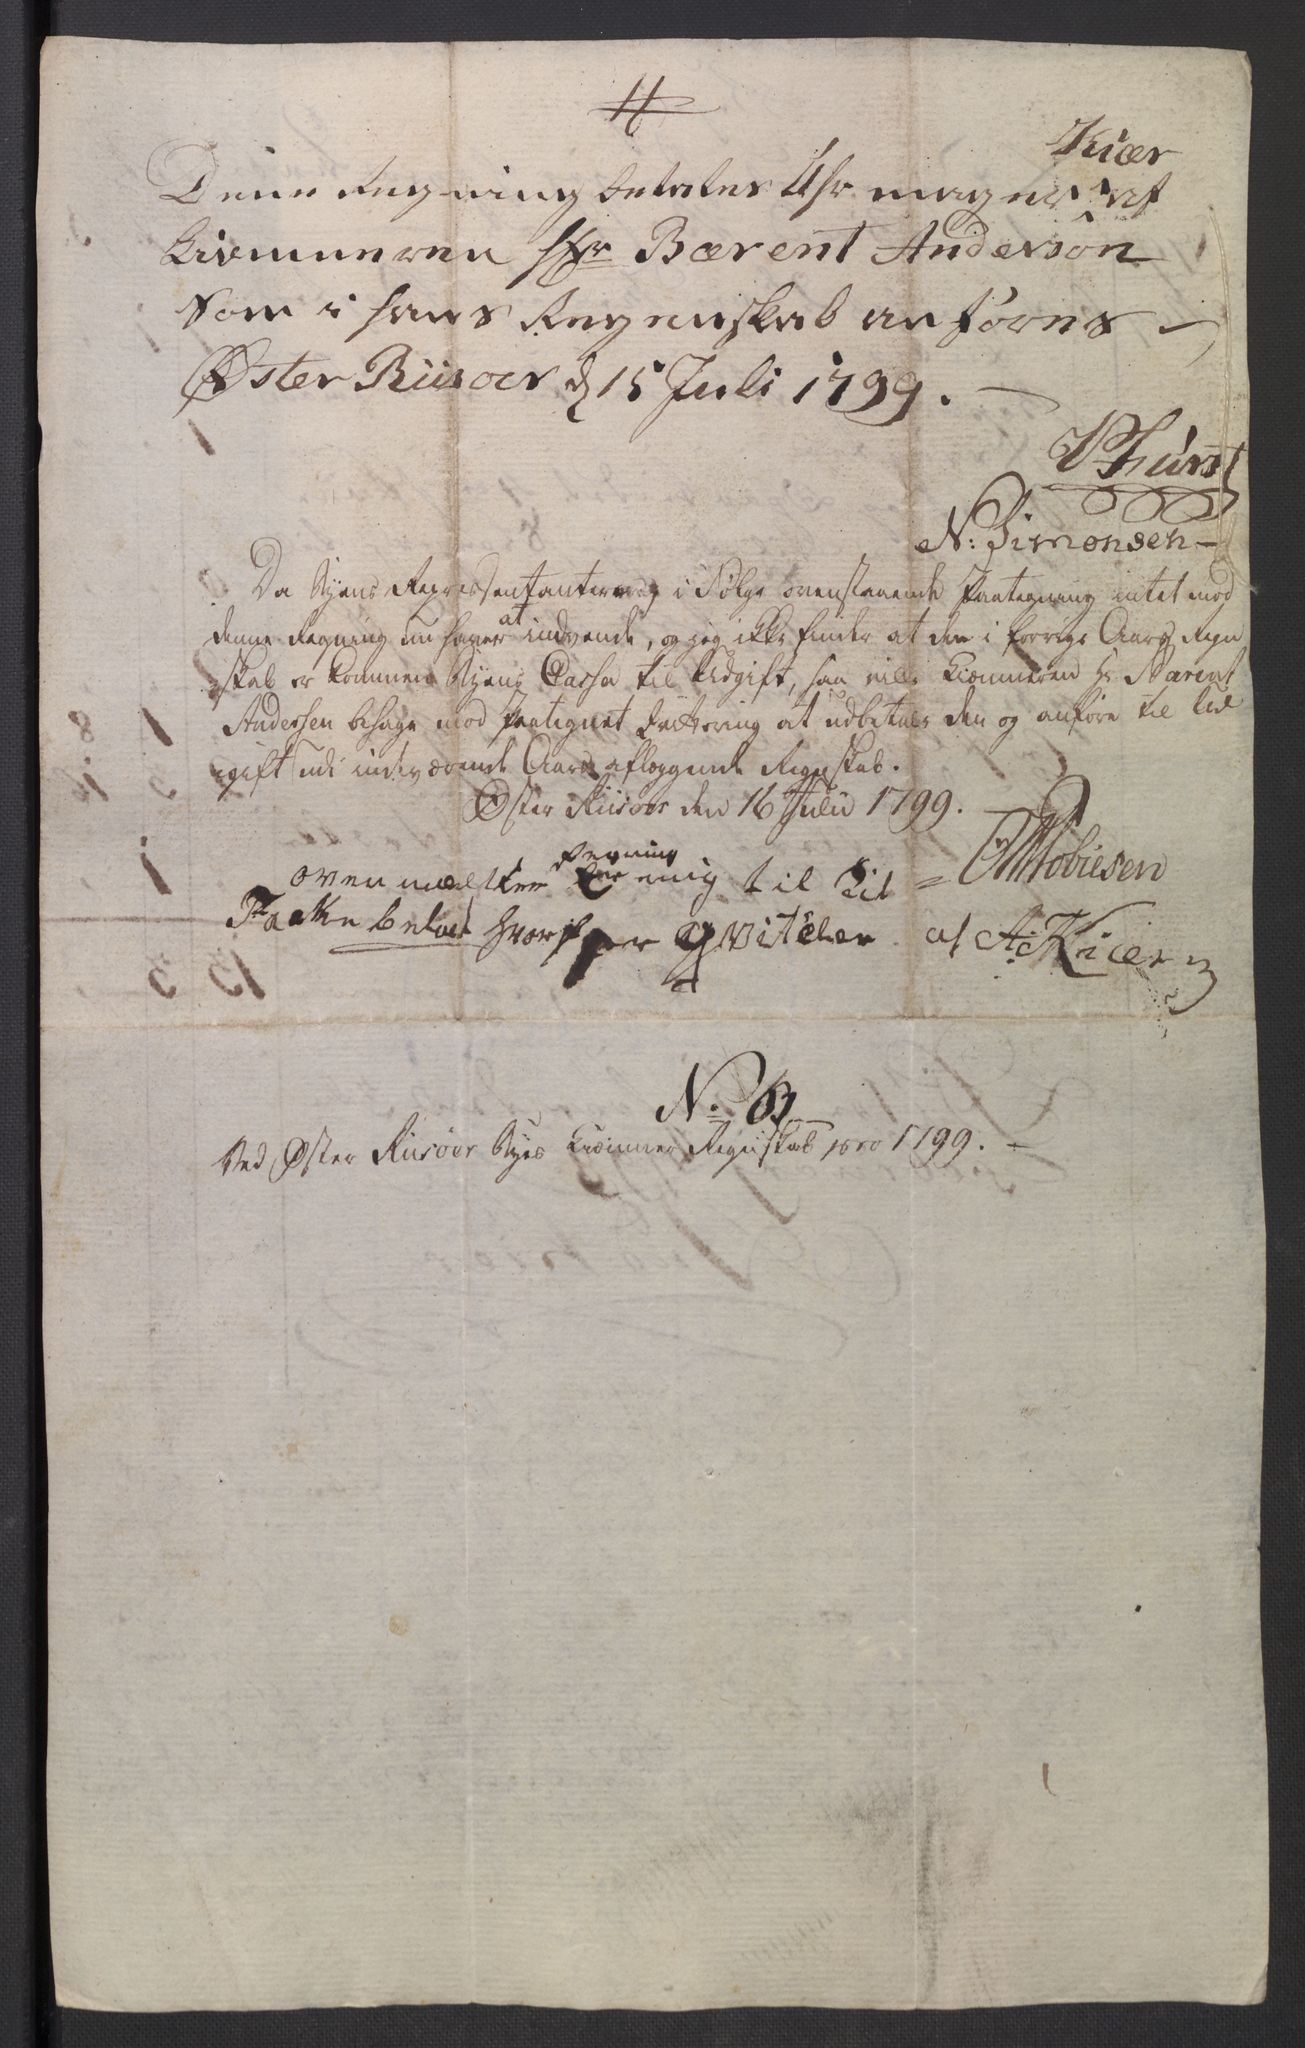 11
Kiær
Denne Regning betales Uhrmager af
Kiemneren Hr Bærent Anderson
som i hans Regenskab anføres
Øster Riisoer d 15 Juli 1799.
Fürst
N: Simonsen
Da Byens Repræsentantere i Følge ovenstaaende Paategning intet mod
denne Regning haver at indvende, og jeg ikke finder at den i forrige Aars Regn
skab er kommen Byens Cassa til Udgift, saa ville Kiæmneren Hr Barent
Andersen behage mod paategnet Qvittering at udbetale den og anføre til Ud
gift udi indeværende Aars aflæggende Regnskab.
Øster Riisøer den 16 Julii 1799.
Tobiesen
Regning
oven mælte er mig til
Tacke betalt hvorfor qvitterer af A: Kiær
No. 13
Ved Øster Riisøer Byes Kiæmner Regnskab pro 1799.